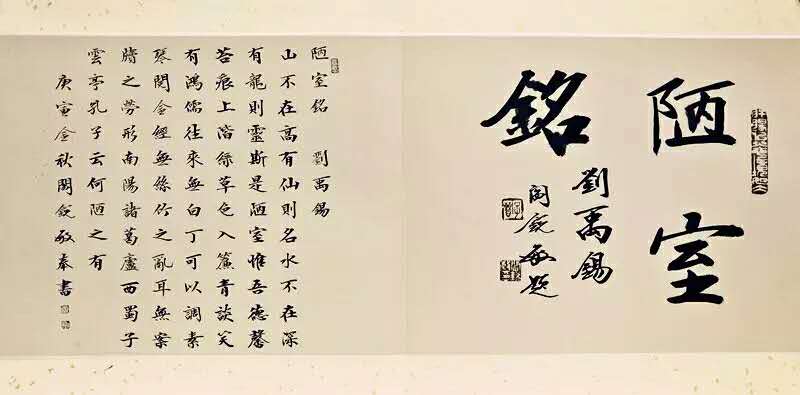 陋室
銘
劉禹錫
閔銳敏題
陋室銘 劉禹錫
山不在高有仙則名水不在深
有龍則靈斯是陋室惟吾德馨
苔痕上階綠草色入簾青談笑
有鴻儒往來無白丁可以調素
琴閱金經無絲竹之亂耳無案
牘之勞形南陽諸葛廬西蜀子
雲亭孔子云何陋之有
庚寅金秋閔銳敏奉書